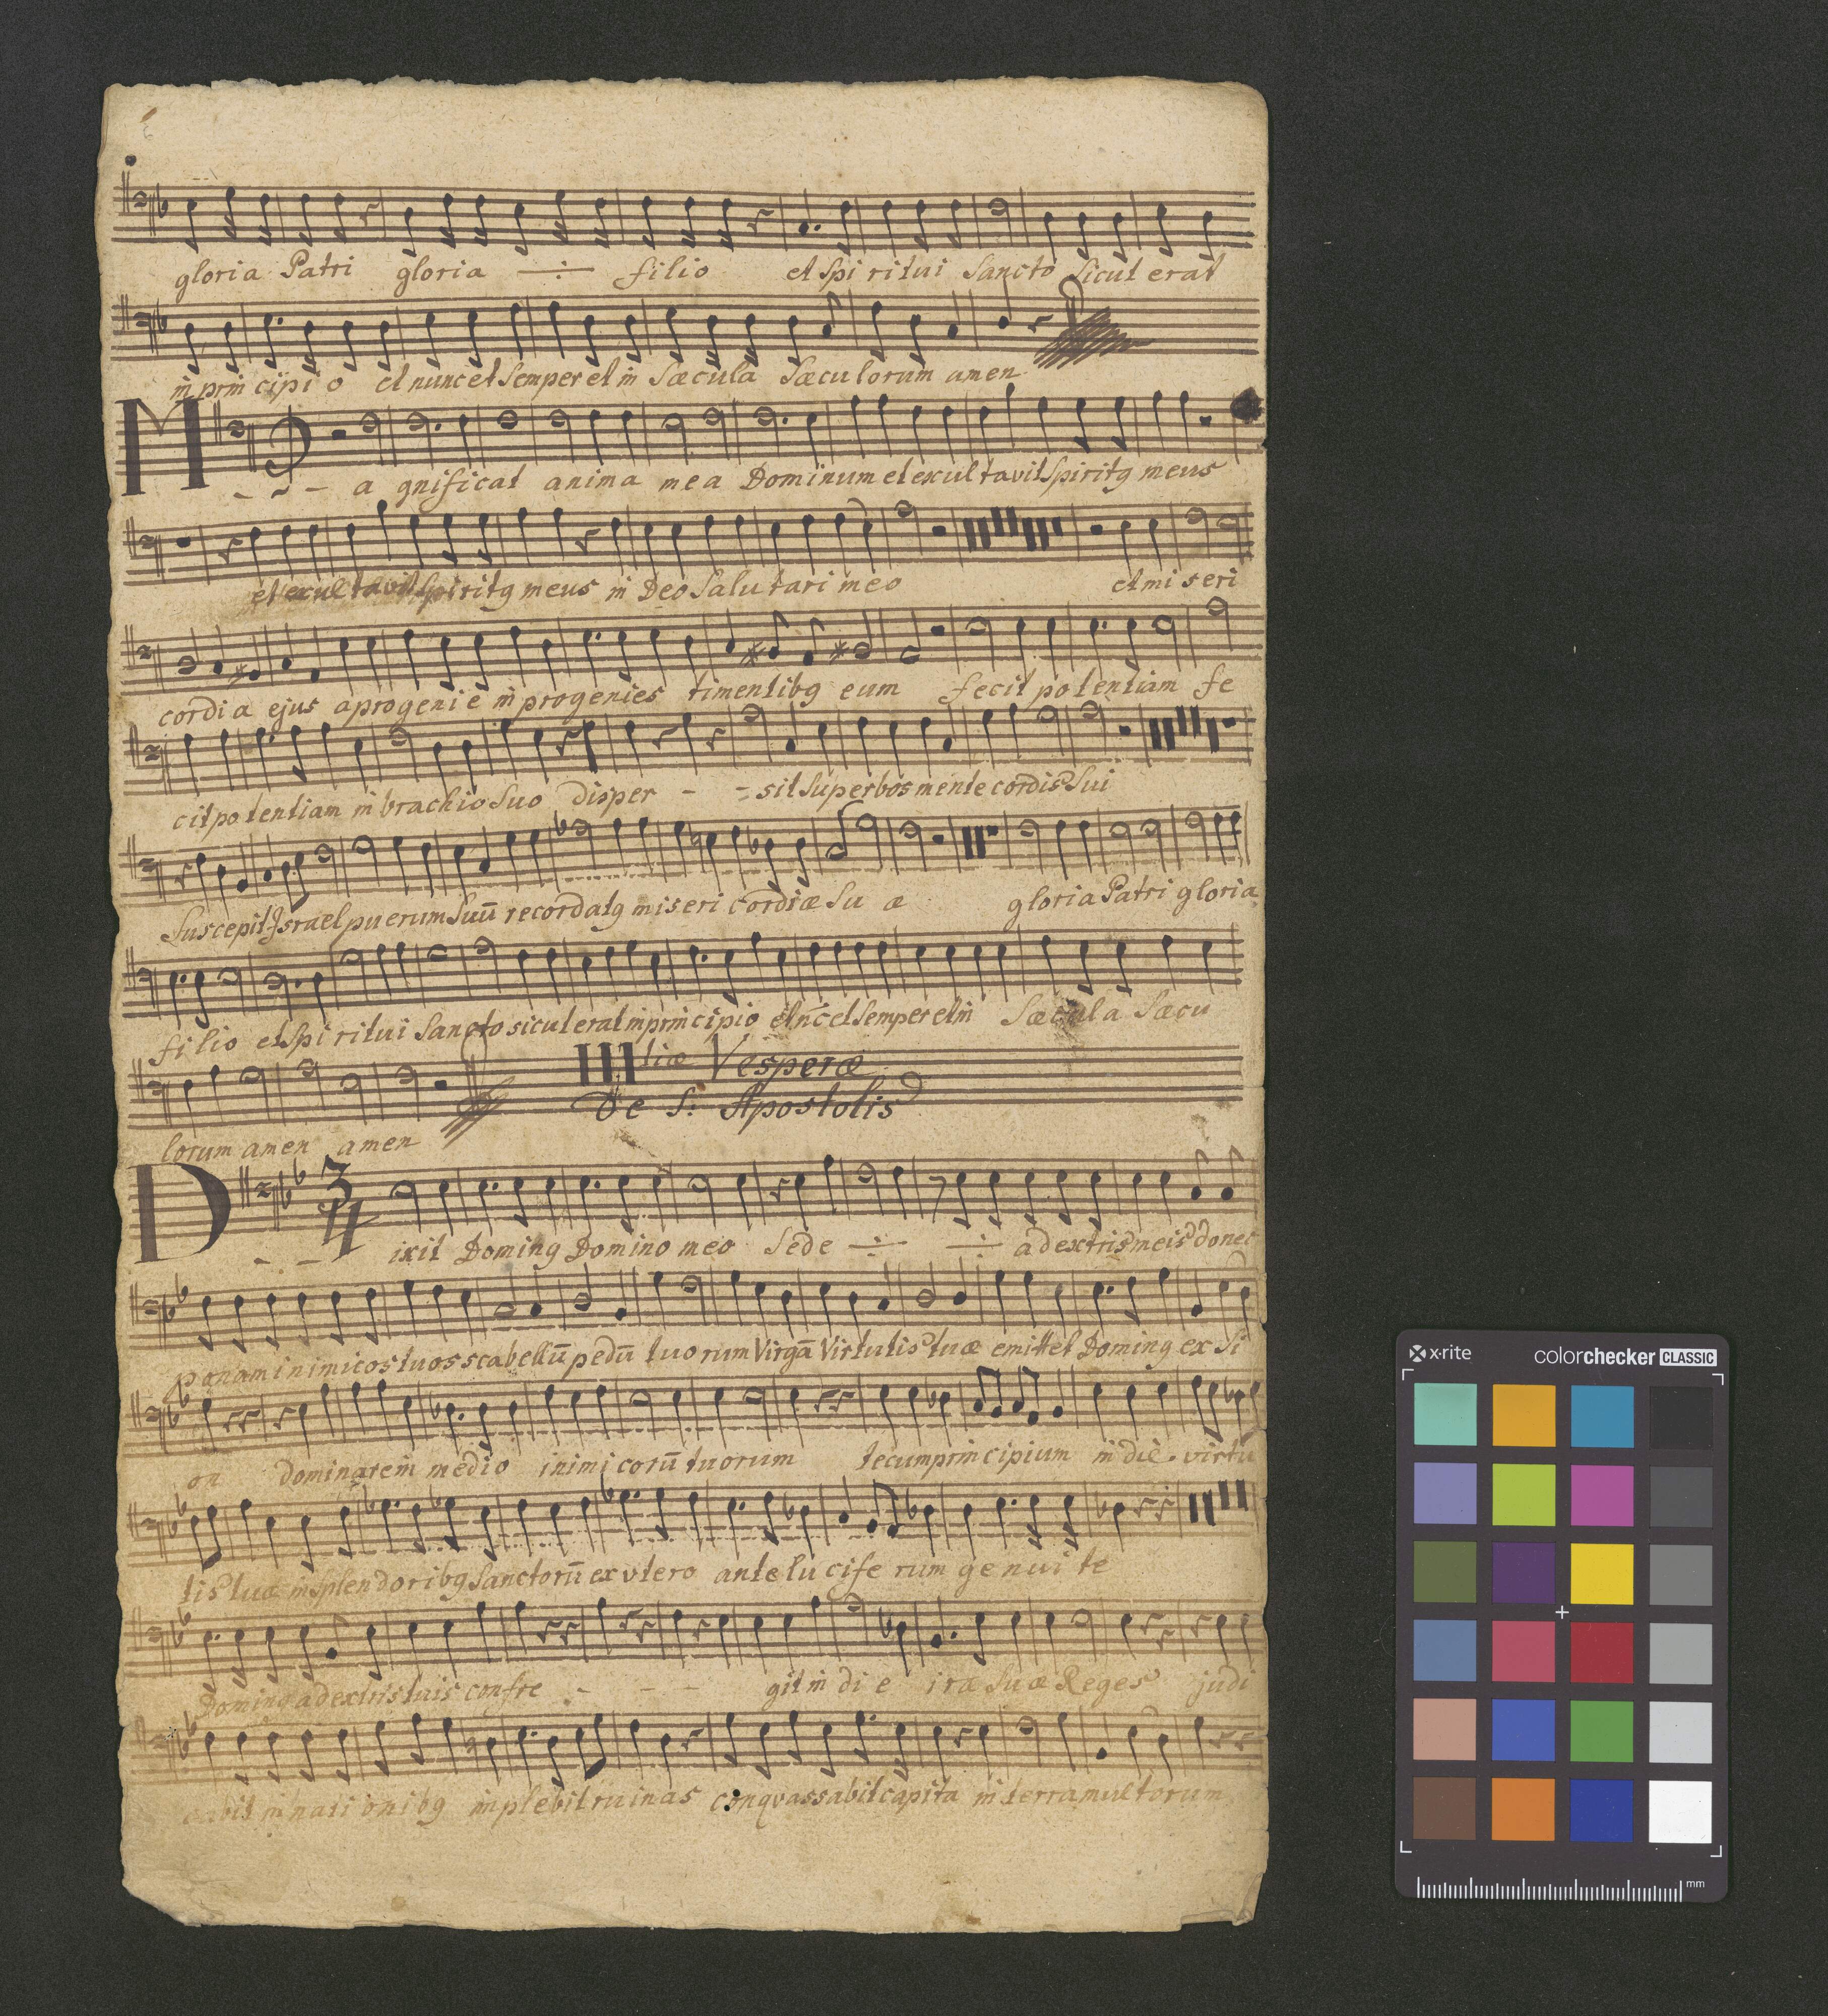 gloria Patri gloria filio et Spi ritui Sancto Sicut erat
in prin cipi o et nunc et Semper et in Sæcula Sæcu lorum amen
M
a gnificat anima mea Dominum et exul tavit Spiritq meus
et exul tavit Spiritq meus in Deo Salu tari meo et mi seri
cordi a ejus a progeni e in progenies timentibq eum fecit potentiam fe
cit potentiam in brachio Suo disper - - sit Superbos mente cordis Sui
Suscepit Israel puerum Suū recordatq miseri cordiæ Su æ gloria Patri gloria
filio et Spi ritui Sancto sicut erat in principio et nc̄ et Semper et in Sæcula Sæcu
IIItiæ Vesperæ
De S: Apostolis
lorum amen amen
D 3/4
ixit Dominq Domino meo Sede a dextris meis donec
ponam inimicos tuos scabellū pedū tuorum Virgā Virtutis tuæ emittet Dominq ex Si
on dominare in medio inimi corū tuorum tecum principium in die virtu
tis tuæ in splendoribq Sanctorū ex utero ante lu cife rum genui te
Dominq a dextris tuis confre - - - git in di e iræ Suæ Reges judi
cabit in nati onibq implebit ruinas conquassabit capita in terra multorum
x-rite colorchecker CLASSIC
mm